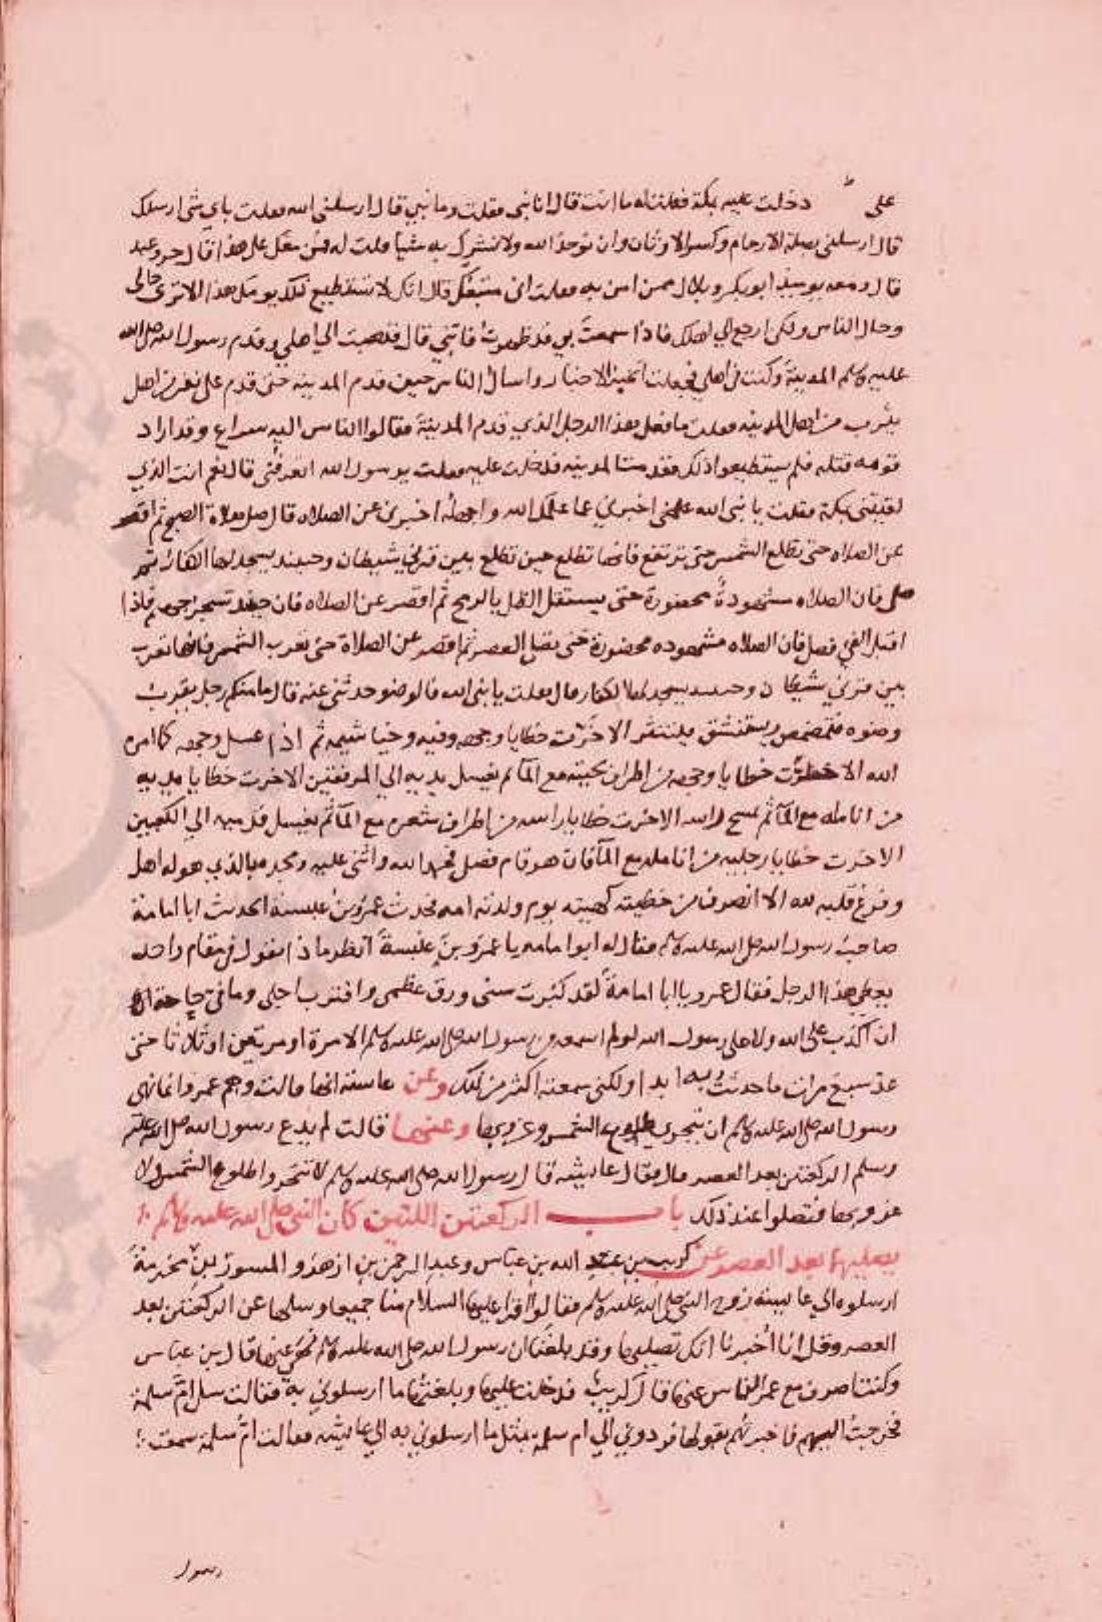 على دخلت عليه بمكة فقلت له ما انت قال انا نبي فقلت وما نبي قال ارسلني الله فقلت باي شي ارسلك
قال ارسلني بصلة الارحام وكسر الاوثان وان توحد الله ولا تشرك به شيا قلت له فمن معك على هذا قال حر وعبد
قال ومعه يوميذ ابو بكر وبلال ممن امن به فقلت اني متبعك قال انك لا تستطيع ذلك يومك هذا الا ترى حالي
وحال الناس ولكن ارجع الي اهلك فاذا سمعت بي قد ظهرت فاتني قال فذهبت الي اهلي وقدم رسول الله صلى الله
عليه وسلم المدينة وكنت في اهلي فجعلت اتخبر الاخبار واسال الناس حين قدم المدينه حتى قدم على نفر من اهل
يثرب من اهل المدينه فقلت ما فعل هذا الرجل الذي قدم المدينة فقالوا الناس اليه سراع وقد اراد
قومه قتله فلم يستطيعوا ذلك فقدمت المدينه فدخلت عليه فقلت يرسول الله اتعرفني قال نعم انت الذي
لقيتني بمكة فقلت يا نبي الله علمني اخبرني عما علمك الله واجهله اخبرني عن الصلاه قال صل صلاة الصبح ثم اقصر
عن الصلاه حتى تطلع الشمس حتى ترتفع فانها تطلع حين تطلع بين قرني شيطان وحينيد يسجد لها الكفار ثم
صلي فان الصلاه مشهودة محضورة حتى يستقل الظل بالرمح ثم اقصر عن الصلاه فان حينئذ تسجر جهنم فاذا
اقبل الفي فصل فان الصلاه مشهوده محضورة حتى تصل العصر ثم اقصر عن الصلاة حتى تغرب الشمس فانها تغرب
بين قرني شيطان وحينيد يسجد لها الكفار قال فقلت يا نبي الله فالوضو حدثني عنه قال ما منكم رجل يقرب
وضوه فتمضمض ويستنشق فينتثر الا خرت خطايا وجهه وفيه وخياشيمه ثم اذا غسل وجهه كما امره
الله الا خرت خطايا وجهه من اطراف لحيته مع الما ثم يغسل يديه الي المرفقين الا خرت خطايا يديه
من انامله مع الما ثم يمسح راسه الا خرت خطايا راسه من اطراف شعره مع الما ثم يغسل قدميه الي الكعبين
الا خرت خطايا رجليه من انامله مع الما فان هو قام فصلى فحمد الله واثنى عليه ومجده بالذي هو له اهل
وفرغ قلبه لله الا انصرف من خطيته كهيته يوم ولدته امه فحدث عمرو بن عبسة الحديث ابا امامة
صاحب رسول الله صلى الله عليه وسلم فقال له ابو امامه يا عمرو بن عبسة انظر ماذا تقول في مقام واحد
يعطي هذا الرجل فقال عمرو يا ابا امامة لقد كبرت سني ورق عظمي واقترب اجلي وما في حاجة
ان اكذب على الله ولا على رسول الله لو لم اسمعه من رسول الله صلى الله عليه وسلم الا مرة او مرتين او ثلاثا حتى
عد سبع مرات ما حدثت به ابدا ولكني سمعته اكثر من ذلك وعن عايشة انها قالت وهم عمر وانما نهى
رسول الله صلى الله عليه وسلم ان يتحرى طلوع الشمس وغروبها وعنها قالت لم يدع رسول الله صلى الله عليه
وسلم الركعتين بعد العصر قال فقال عايشه قال رسول الله صلى الله عليه وسلم لا تتحروا طلوع الشمس ولا
غروبها فتصلوا عند ذلك باب الركعتين اللتين كان النبي صلى الله عليه وسلم
يصليهما بعد العصر عن كريب بن عبد الله بن عباس وعبد الرحمن بن ازهر والمسور بن مخرمة
ارسلوه الي عايشه زوج النبي صلى الله عليه وسلم فقالوا اقرا عليها السلام منا جميعا وسلها عن الركعتين بعد
العصر وقل انا اخبرنا انك تصليهما وقد بلغنا ان رسول الله صلى الله عليه وسلم نهى عنها قال ابن عباس
وكنت اصرف مع عمر الناس عنها قال كريب فدخلت عليها وبلغتها ما ارسلوني به فقالت سل ام سلمة
فخرجت اليهم فاخبرتهم بقولها فردوني الي ام سلمة بمثل ما ارسلوني به الي عايشه فقالت ام سلمة سمعت
رسول